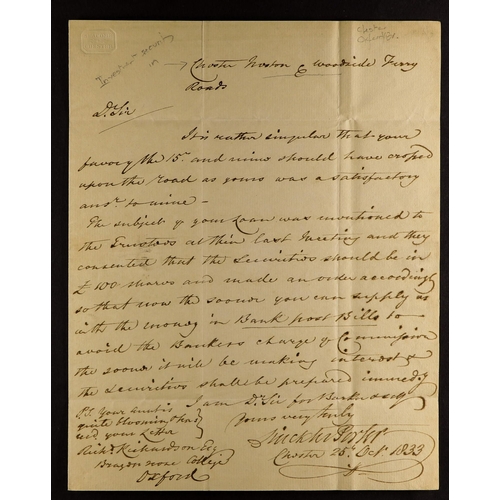 Chester Neston & Woodside Ferry
Roads
Investment security
in
Chester
Dr. Sir
It is rather singular that your
favor of the 15th and mine should have crossed
upon the Road as yours was a satisfactory
ansr. to mine -
The subject of your Loan was mentioned to
the Trustees at their last Meeting and they
consented that the Securities should be in
£100 shares and made an order accordingly
so that now the sooner you can supply us
with the money in Bank post Bills to
avoid the Bankers charge of Commission
the sooner it will be making interest &
the Securities shall be prepared immedy.
I am Dr. Sir for Barker & self
Yours very truly
Chester 25th Octr. 1833
P.S. Your Aunt is
quite blooming & had
recd your Letter
Richd. Richardson Esq
Brazen nose College
Oxford